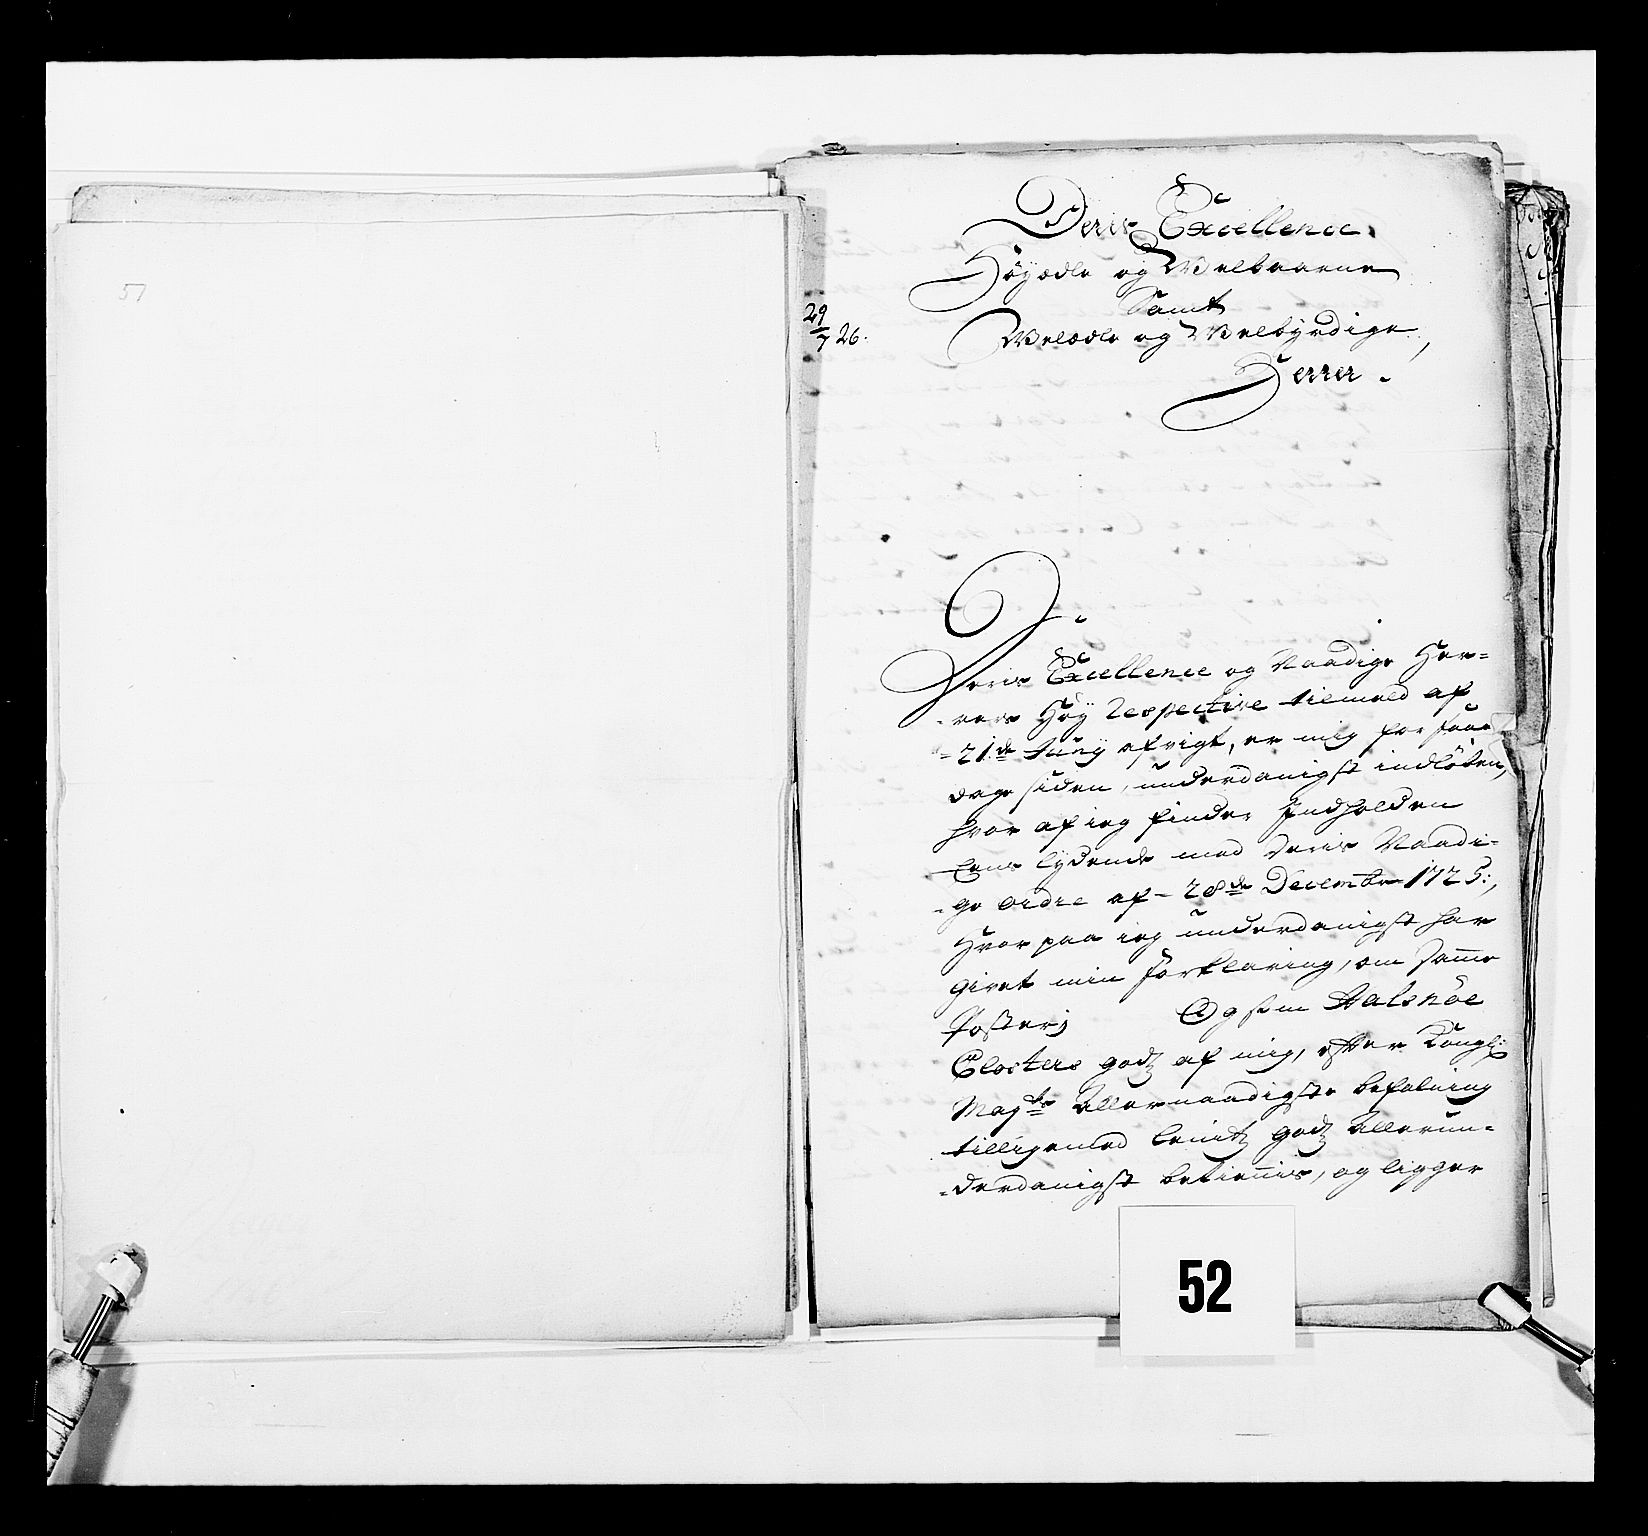 51
Deris Excellence.
Høyædle og Welbaarne
Samt
29/7 26.
Welædle og Welbyrdige,
Herrer.
Deris Excellence og Naadige Her=
=rers Høy respective tilmeld af
=21de Junÿ afvigt, er mig for faae
dage siden, underdanigst indløben,
hvor af ieg finder Indholden
Eens lÿdende med Deris Naadi=
=ge ordre af 28de Decembr 1725:,
Hvor paa ieg underdanigst har
givet min forklaring, om samme
Posterj Og som Halsnöe
Closters godz af mig, efter Kongl:
Maÿts Allernaadigste befalning
tilligemed Lenitz godz Allerun=
=derdanigst betienis, og ligger
52